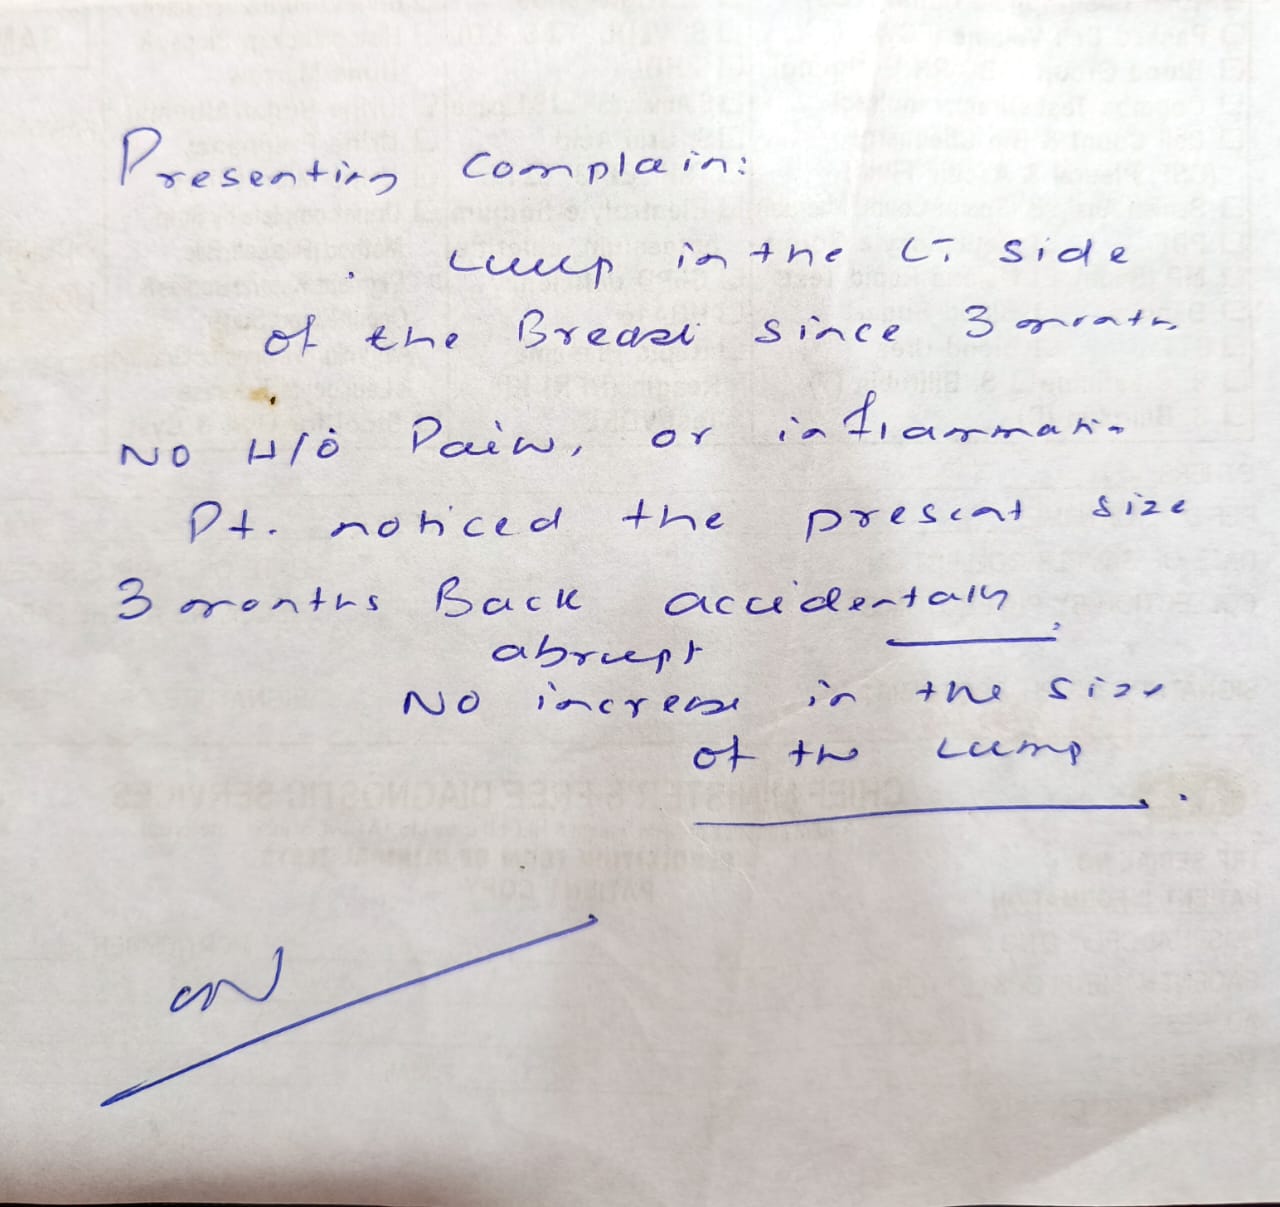 Presenting Complain:
. Lump in the LT. side
of the Breast since 3 month
NO H/O Pain, or inflammation
Pt. noticed the present size
3 months Back accidentally.
abrupt
NO increase in the size
of the Lump.